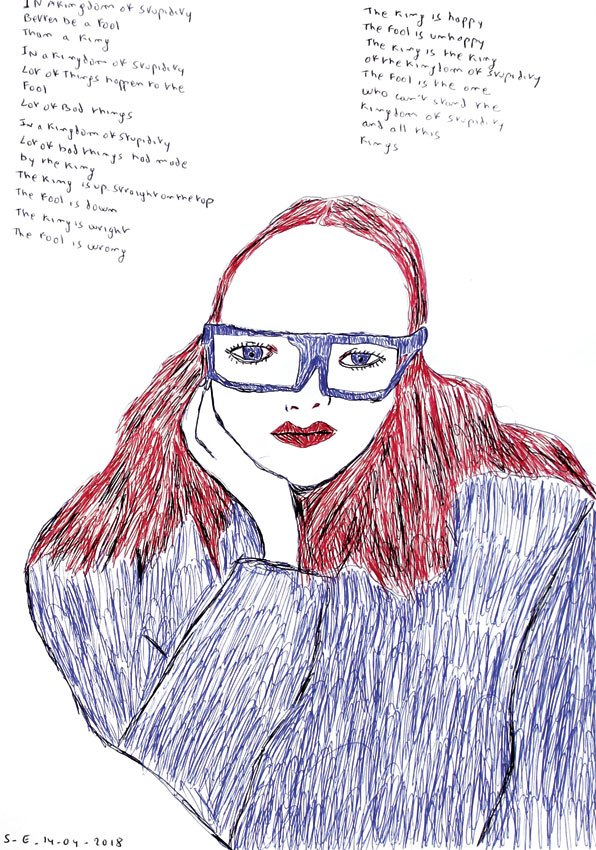 IN A Kingdom of Stupidity
Better be a Fool
Than a King
IN a Kingdom of Stupidity
Lot of Things happen to the
Fool
Lot of Bad things
In a Kingdom of Stupidity
Lot of bad things had made
by the King
The King is up. straight on the top
The Fool is down
The King is wright
The Fool is wrong
The King is happy
The Fool is unhappy
The King is the King
of the Kingdom of Stupidity
The Fool is the one
who can't stand the
Kingdom of Stupidity
and all this
Kings
S-E.14-04-2018